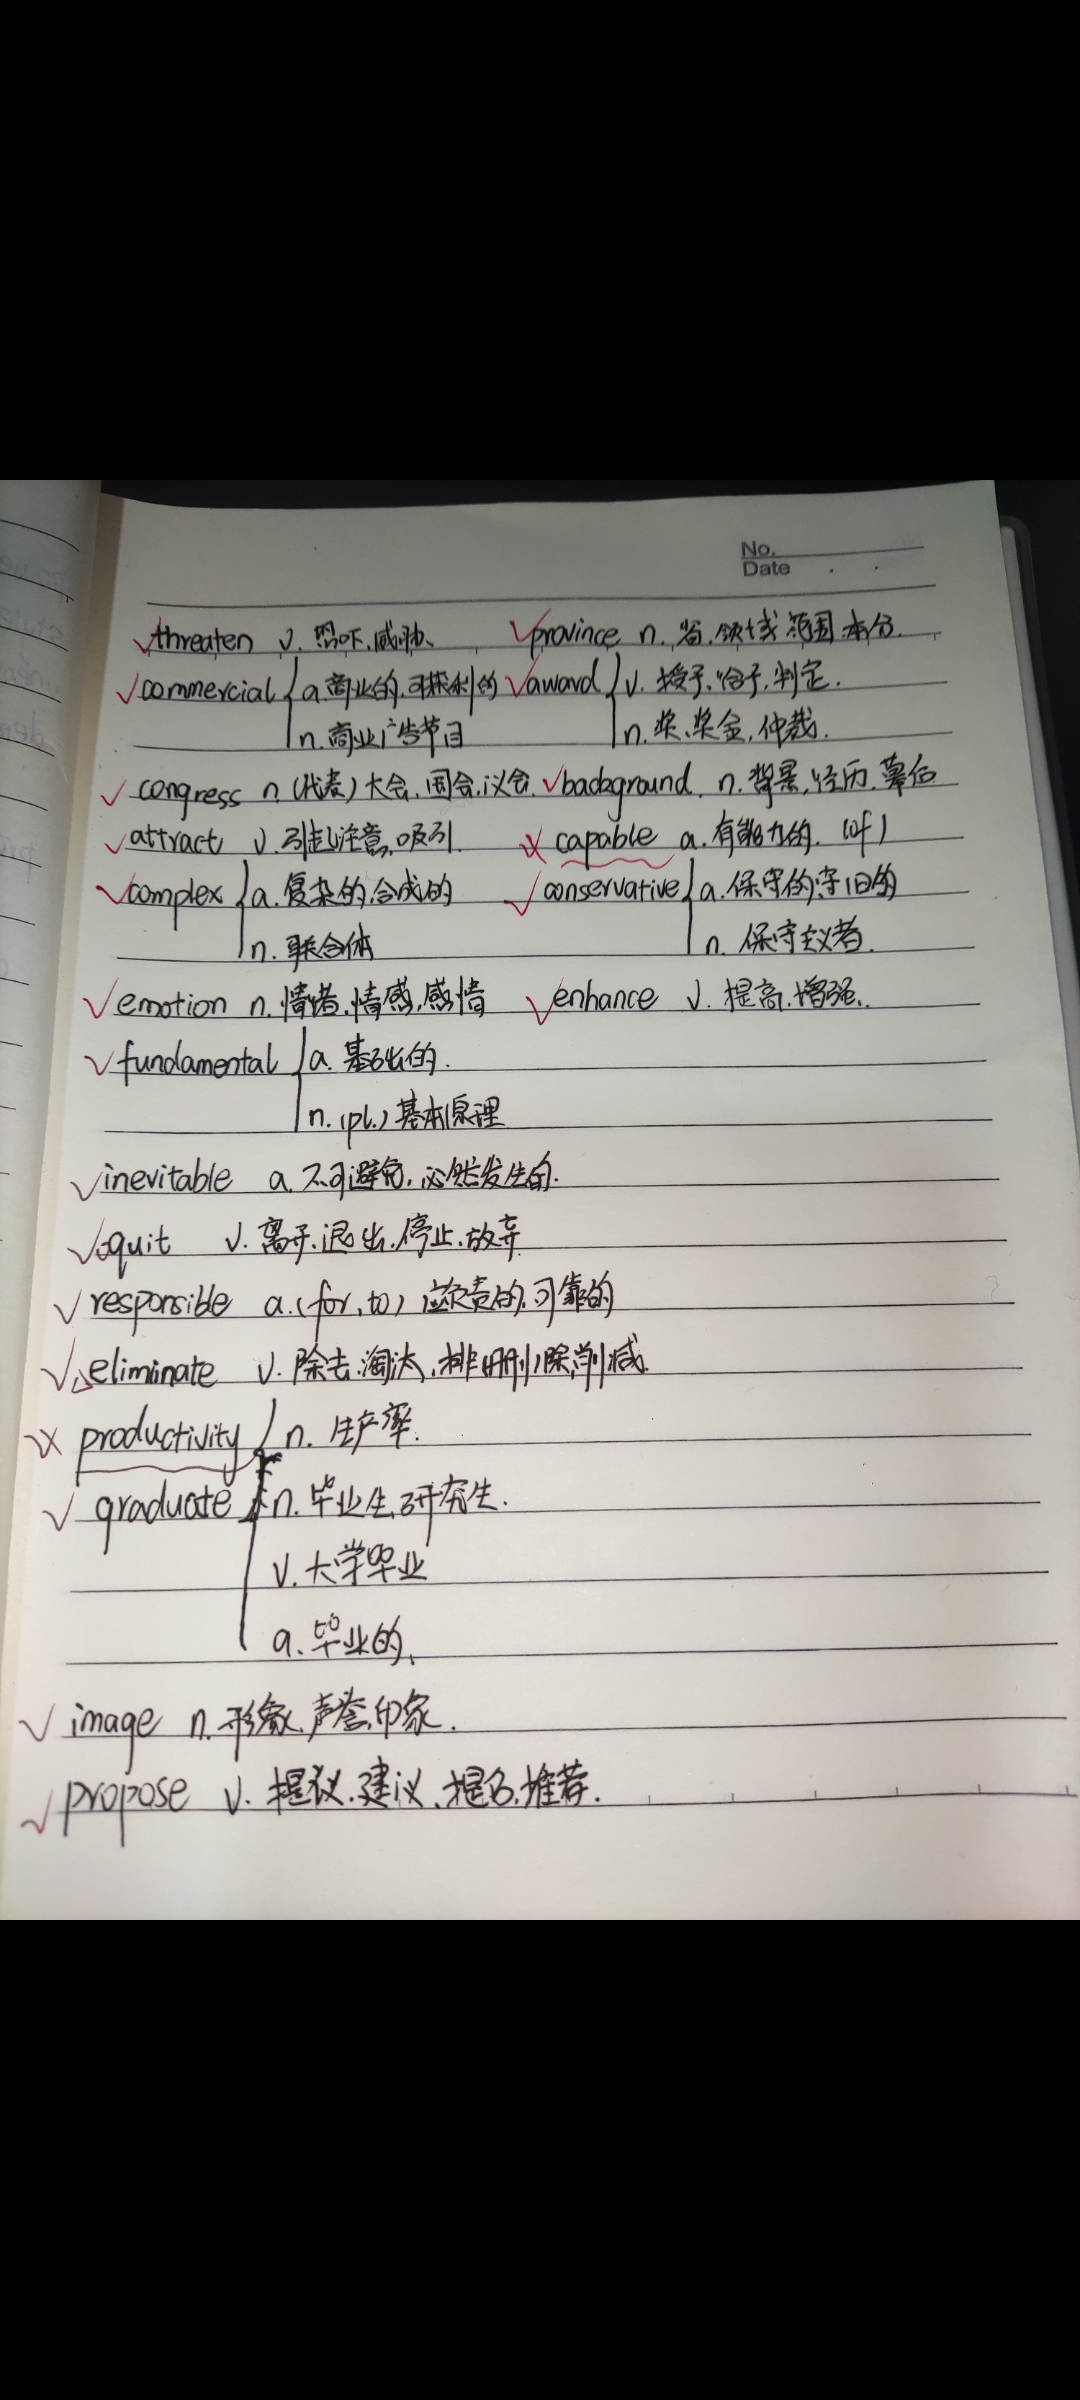 No.
Date
threaten v. 恐吓、威胁、
province n. 省、领域、范围、本分.
commercial a. 商业的、可获利的
n. 商业广告节目
award v. 授予、给予、判定.
n. 奖、奖金、仲裁.
congress n. (代表)大会、国会、议会.
background n. 背景、经历、幕后
attract v. 引起注意、吸引.
capable a. 有能力的. (of)
complex a. 复杂的、合成的
n. 联合体
conservative a. 保守的、守旧的
n. 保守主义者.
emotion n. 情绪、情感、感情
enhance v. 提高、增强.
fundamental a. 基础的.
n. (pl.) 基本原理
inevitable a. 不可避免、必然发生的.
quit v. 离开、退出、停止、放弃
responsible a. (for, to) 应负责的、可靠的
eliminate v. 除去、淘汰、排除、删除、削减.
productivity n. 生产率.
graduate n. 毕业生、研究生.
v. 大学毕业
a. 毕业的、
image n. 形象、声誉、印象.
propose v. 提议、建议、提名、推荐.